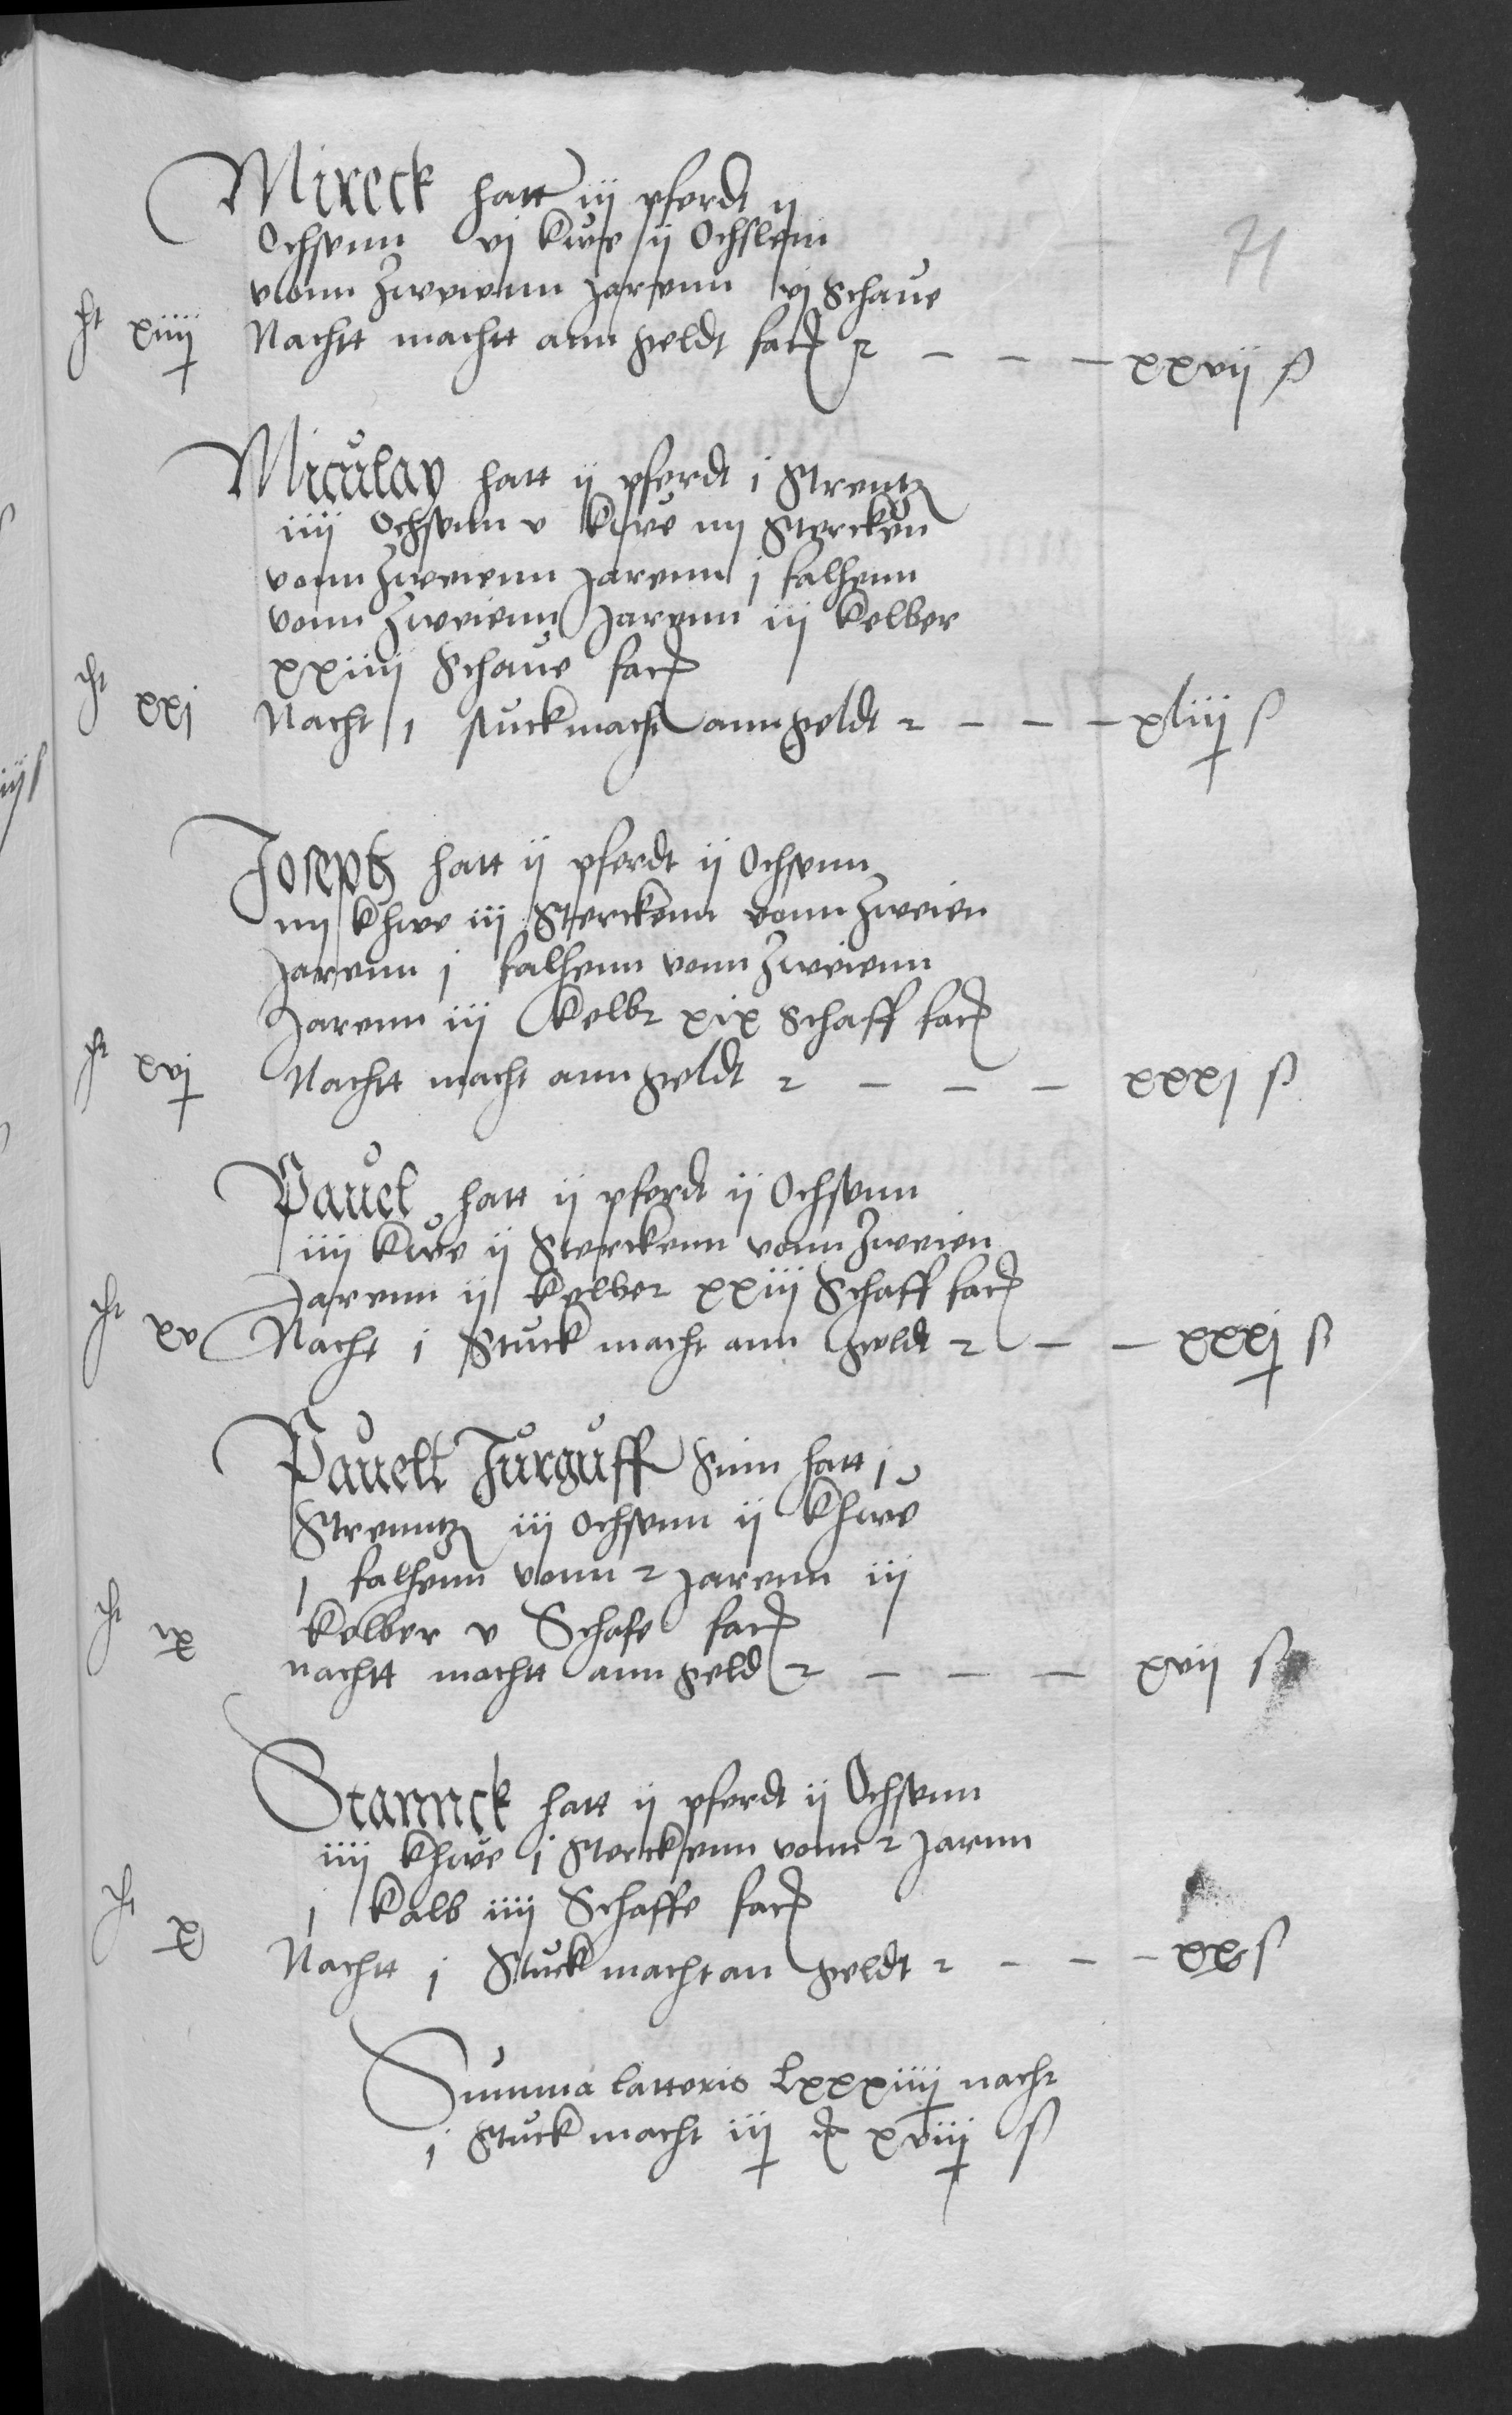 71
Mireck hatt iij pferdt ij
Ochsenn vj kwe ij Ochslein
vonn Zweienn Jarenn vj Schaue
ht xiiij Nachtt machtt ann geldt fac[it] - - - xxvij ß
Miculay hatt ij pferdt j Strentz
iiij Ochsenn v kwe iiij Stercken
vonn Zweienn Jarenn j falhenn
vonn Zweienn Jarenn iij kelber
xxiiij Schaue fac[it]
ht xxj Nacht j stuck macht ann geldt - - - xliij ß
Joseph hatt ij pferdt ij Ochsenn
iiij khwe iij Sterckenn vonn Zweien
Jarenn j falhenn vonn Zweienn
Jarenn iij kelbr xix Schaff fac[it]
ht xvj Nachtt macht ann geldt - - - xxxj ß
Pauel hatt ij pferdt ij Ochsenn
iiij kwe ij Sterckenn vonn Zweien
Jarenn ij kelber xxiij Schaff fac[it]
ht xv Nacht j Stuck macht ann geldt - - xxxj ß
Pauelt Jurguff Sun hatt j
Strenntz iij Ochsenn ij khwe
j falhenn vonn 2 Jarenn iij
kelber v Schafe fac[it]
ht ix nachtt machtt ann geld - - - xvij ß
Stannck hatt ij pferdt ij Ochsenn
iiij khwe j Sterckenn vonn 2 Jarnn
j kalb iiij Schaffe fac[it]
ht x Nachtt j Stuck macht an geldt - - - xx ß
Summa latteris lxxxiiij nacht
j Stuck macht iij xviij ß